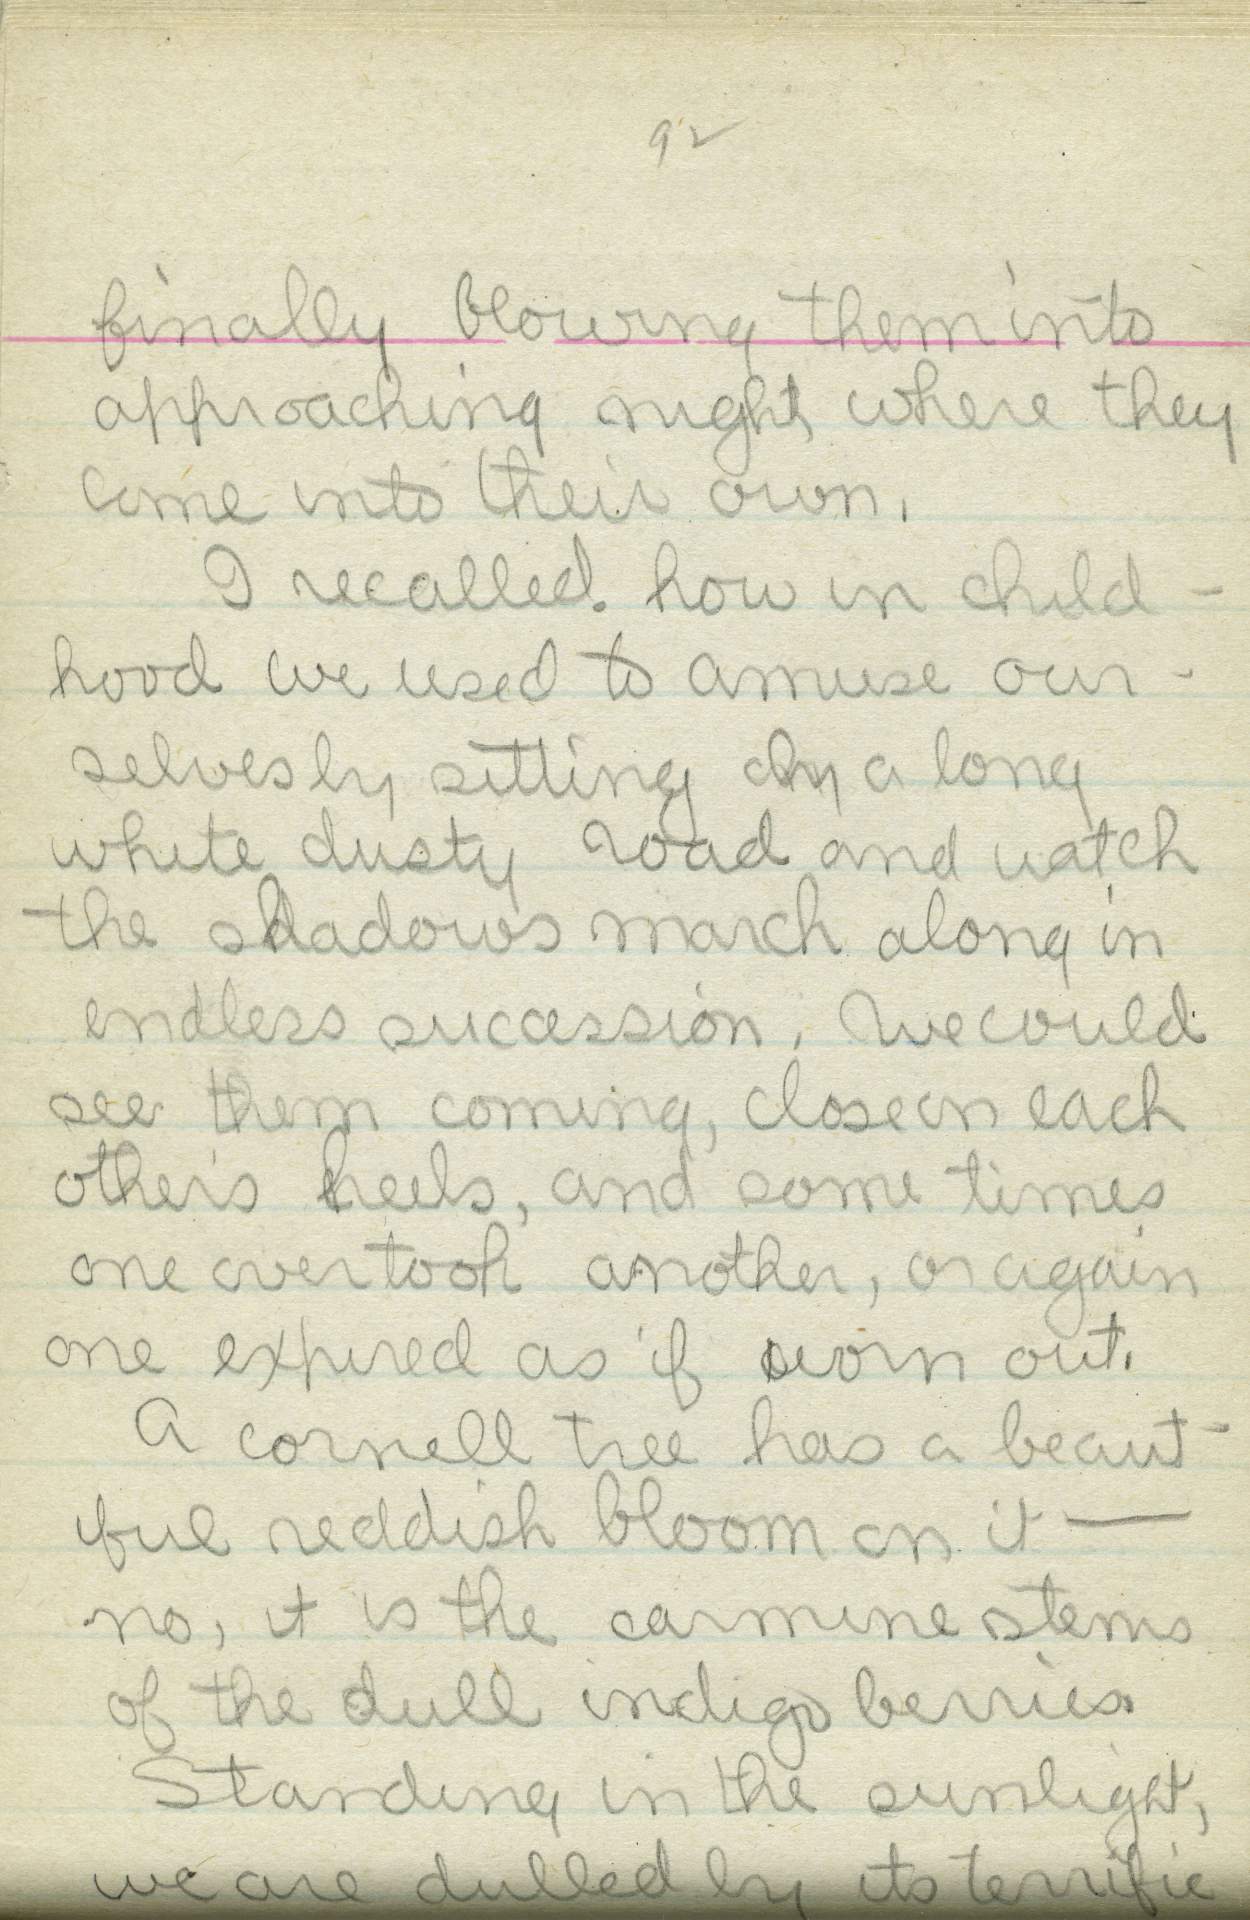 92
finally blowing them into
approaching night, where they
come into their own.
I recalled. how in child-
hood we used to amuse our-
selves by sitting by a long
white dusty road and watch
the shadows march along in
endless sucession. We could
see them coming, close on each
others heels, and some times
one overtook another, or again
one expired as if worn out.
A cornell tree has a beaut-
iful reddish bloom on it —
no, it is the carmine stems
of the dull indigo berries.
Standing in the sunlight,
we are dulled by its terrific